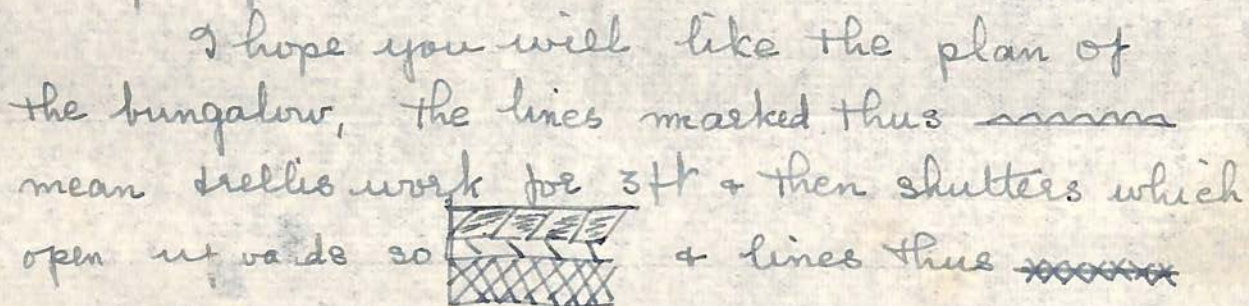 I hope you will like the plan of
the bungalow, the lines marked thus
mean trellis work for 3ft & then shutters which
open so & lines thus